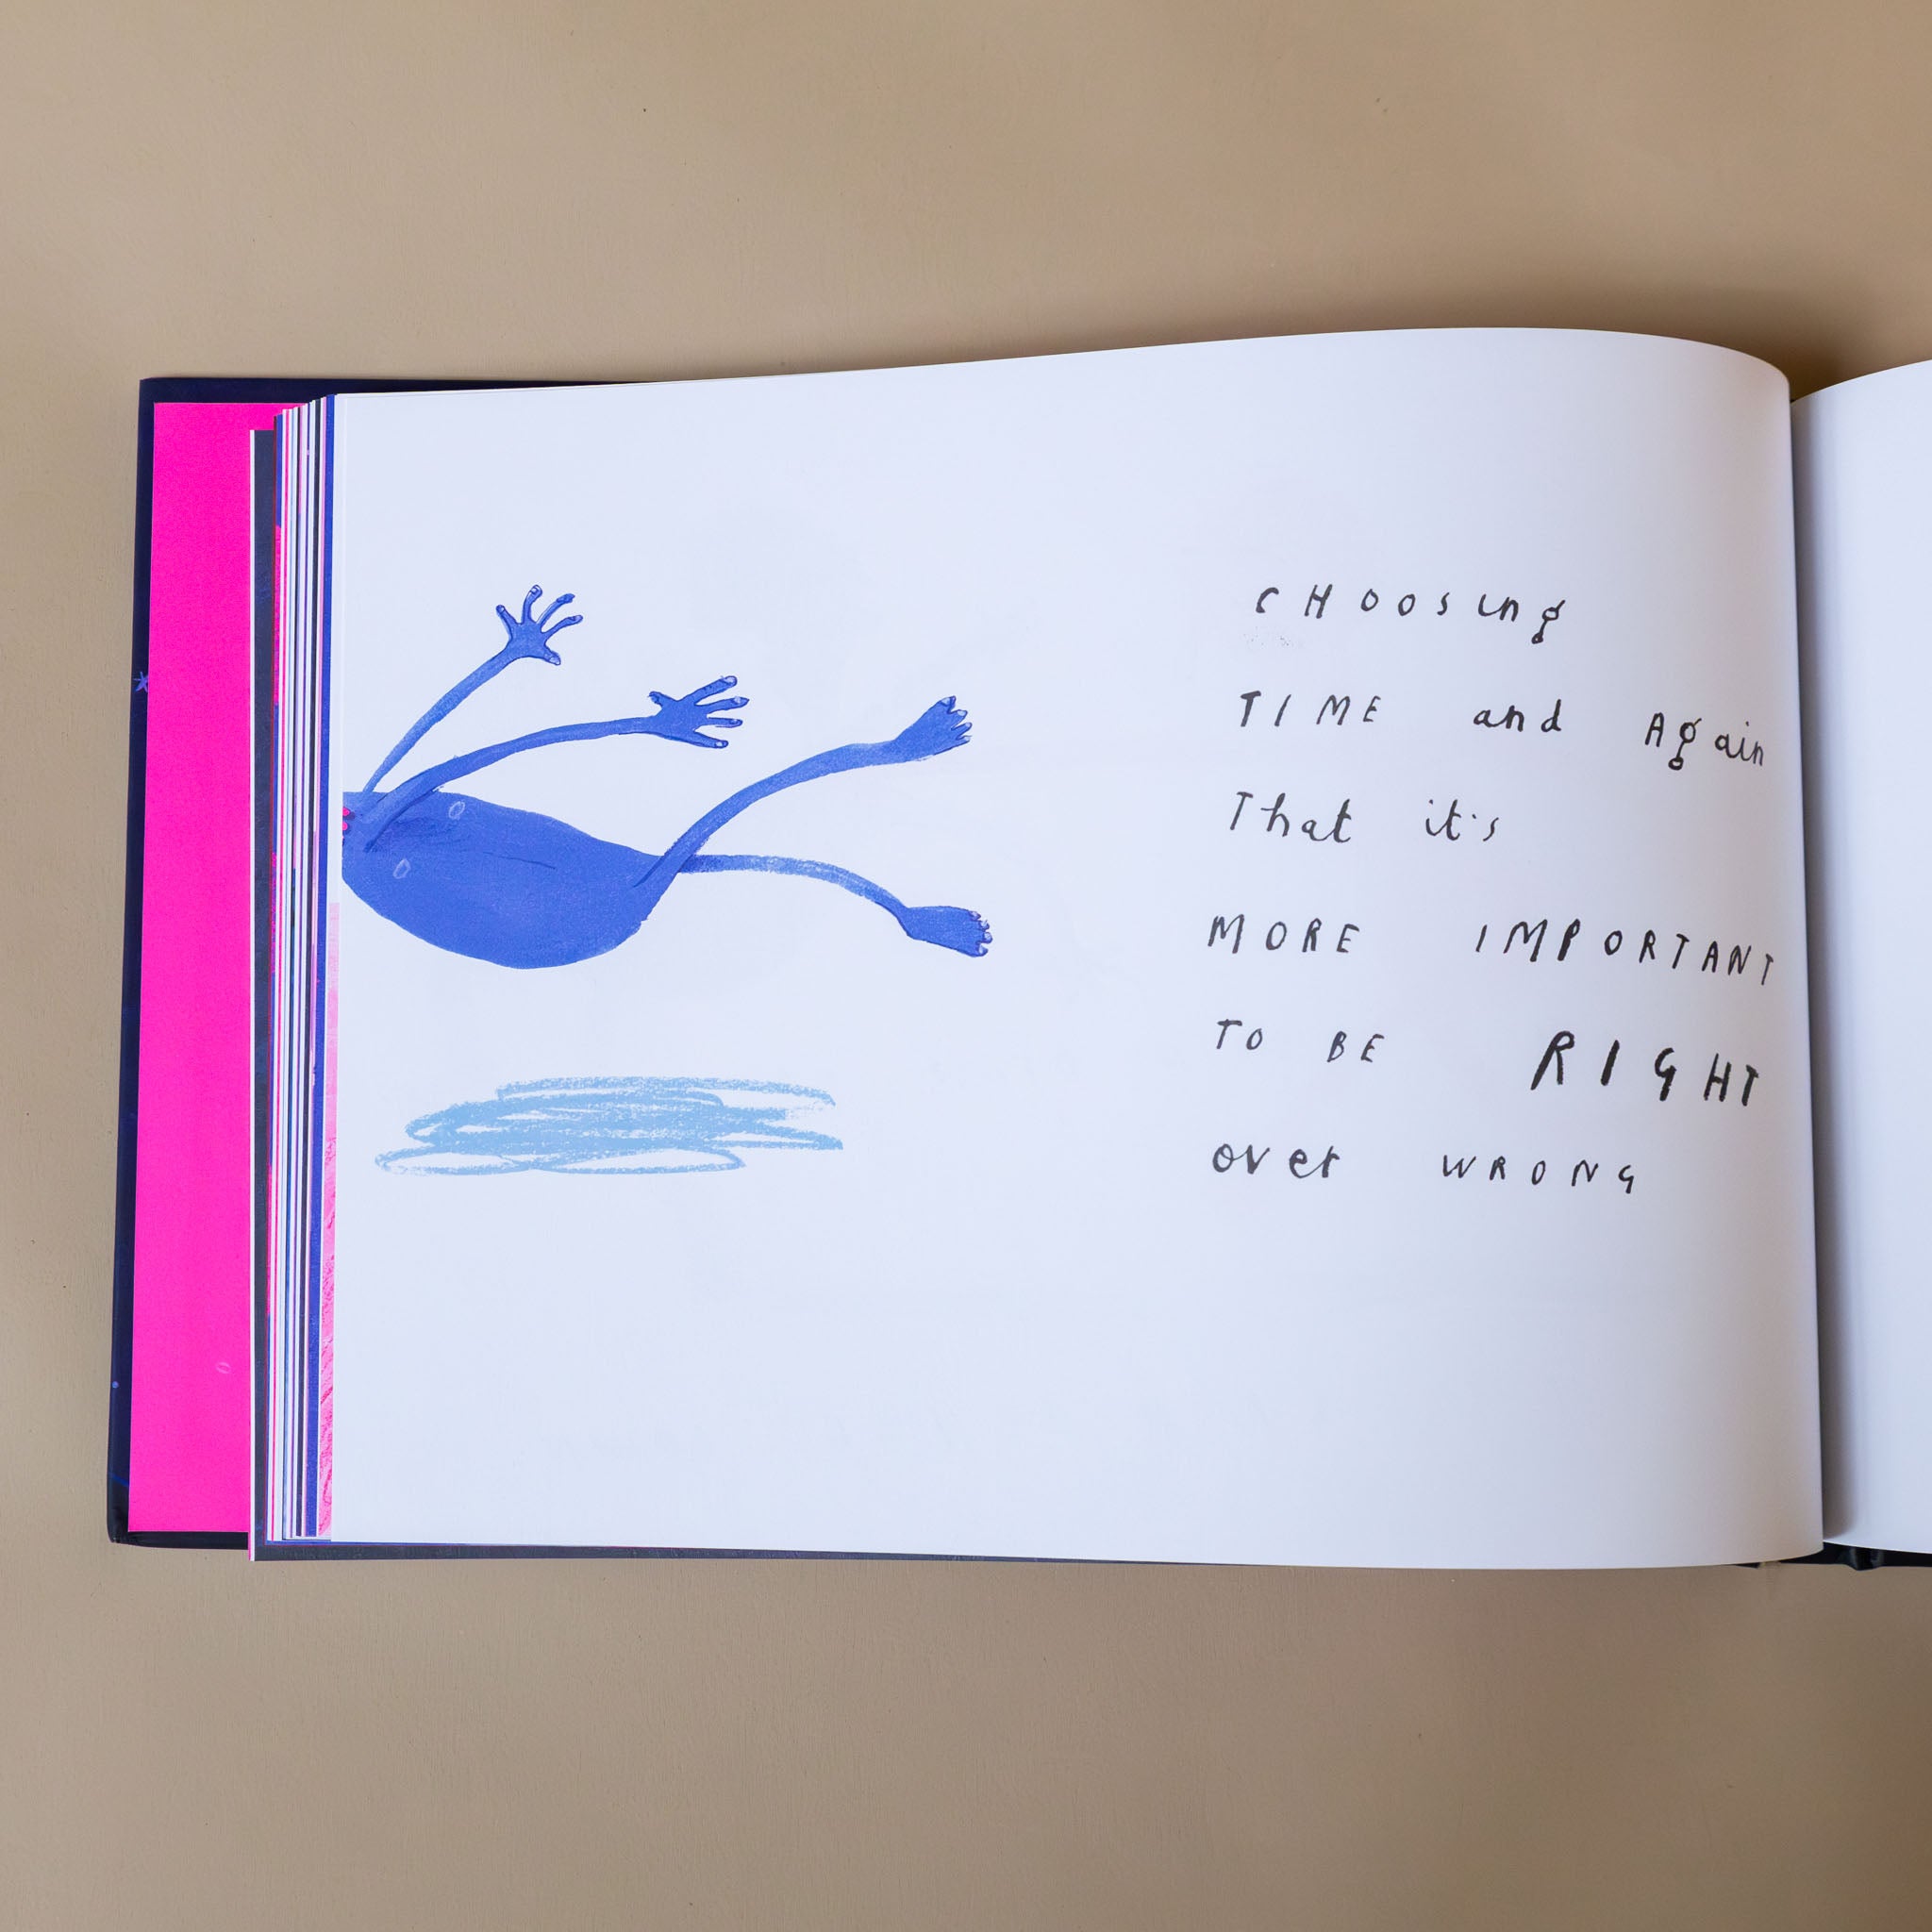 CHOOSing
TIME and Again
That it's
MORE IMPORTANT
TO BE RIGHT
over WRONG